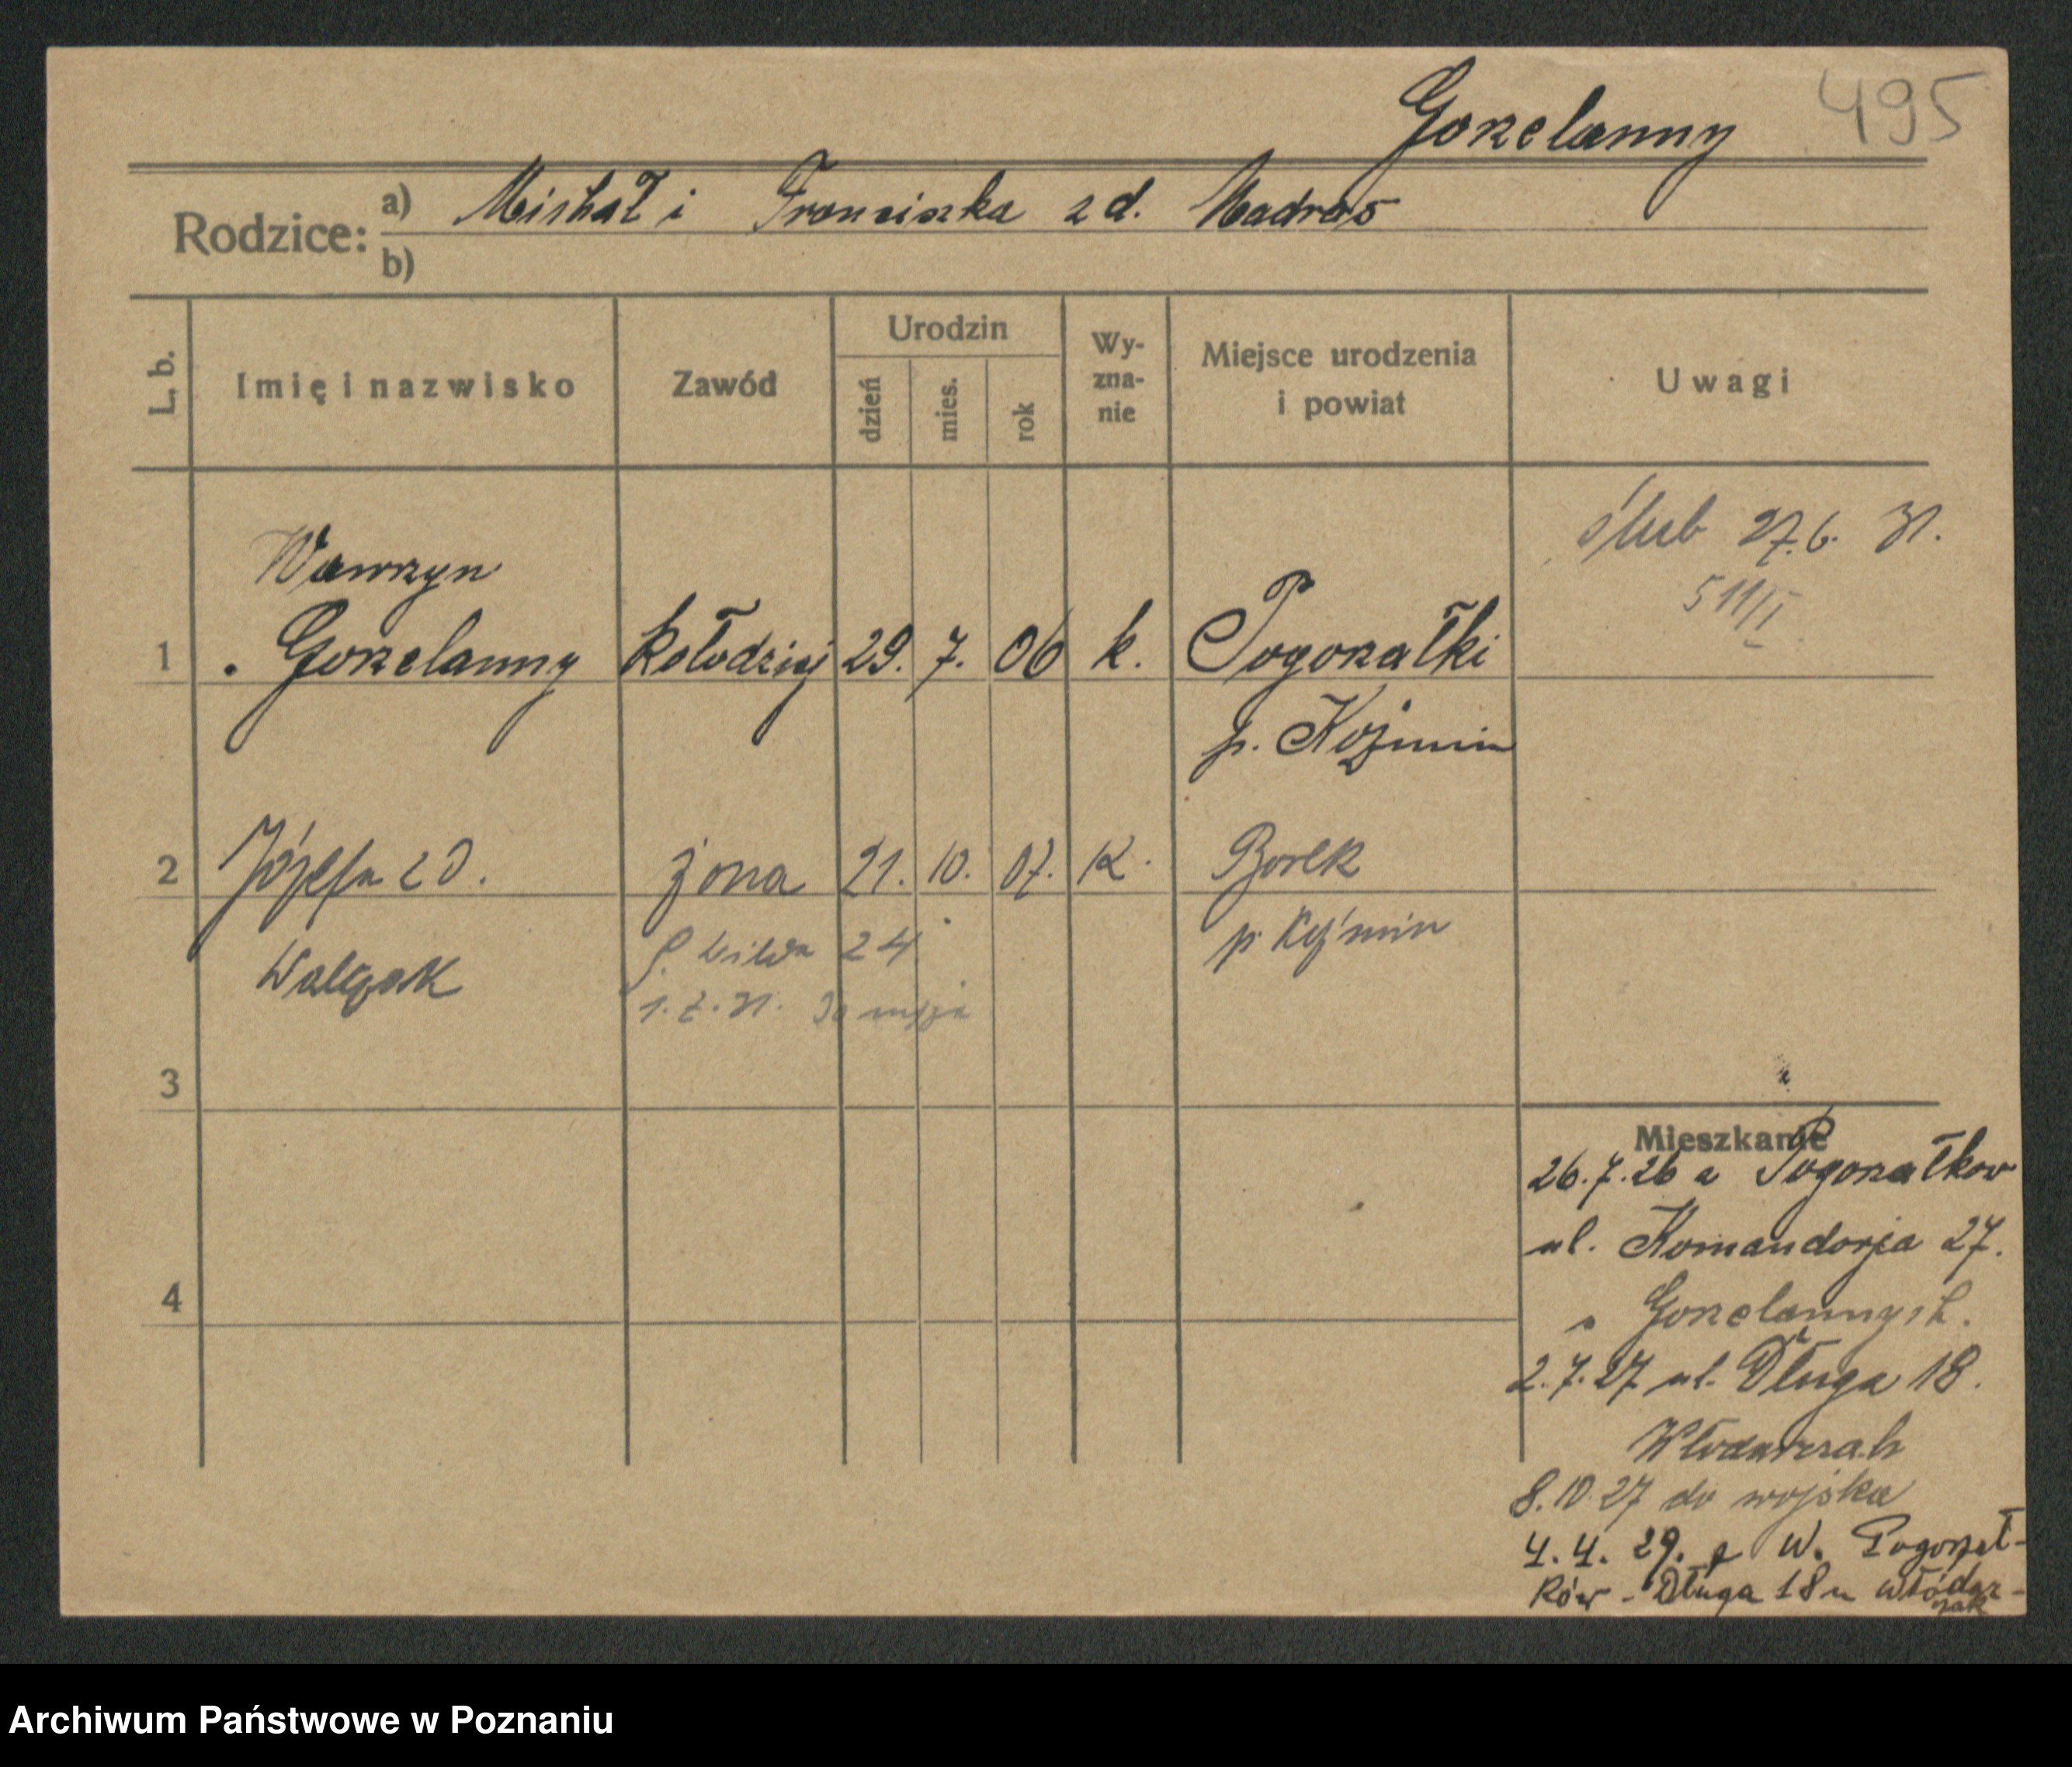 Gorzelanny 495
Rodzice: a) Michał i Franciszka z d. Nadraś
b)
L. b. Imię i nazwisko Zawód Urodzin dzień mies. rok Wy-zna-nie Miejsce urodzenia i powiat Uwagi
ślub 27.6. 31.
511/I
Wawrzyn
1 Gorzelanny kołodziej 29. 7. 06 k. Pogorzałki
p. Koźmin
2 Józefa z d. żona 21. 10. 07. k. Borek
p. Koźmin
Walczak
24
1. 31.
3
Mieszkanie
26.7.26 z Pogorzałków
ul. Komandorja 27.
Gorzelanny
2.7.27 ul. Długa 18.
Włodarczak
8.10.27 do wojska
4.4.29. z W. Pogorzał-
ków - Długa 18 u Włódar-
zak
4
Archiwum Państwowe w Poznaniu